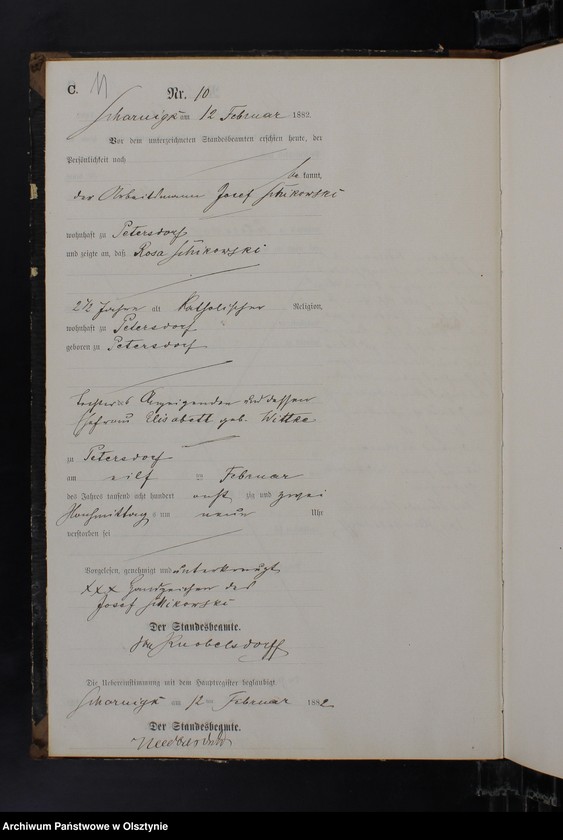 C. 11
Nr. 10
Scharnigk am 12 Februar 1882.
Vor dem unterzeichneten Standesbeamten erschien heute, der
Persönlichkeit nach
be kannt,
der Arbeitsmann Josef Schikowski
wohnhaft zu Petersdorf
und zeigte an, daß Rosa Schikowski
2½ Jahre alt Katholischer Religion,
wohnhaft zu Petersdorf
geboren zu Petersdorf
Tochter des Anzeigenden und dessen
Ehefrau Elisabett geb. Wittke
zu Petersdorf
am eilf ten Februar
des Jahres tausend acht hundert acht zig und zwei
Nachmittag s um neun Uhr
verstorben sei
Vorgelesen, genehmigt und unterkreuzt
XXX Handzeichen des
Josef Schikowski
Der Standesbeamte.
Knobelsdorff
Die Uebereinstimmung mit dem Hauptregister beglaubigt
Scharnigk am 12 ten Februar 1882
Der Standesbeamte.
Archiwum Państwowe w Olsztynie